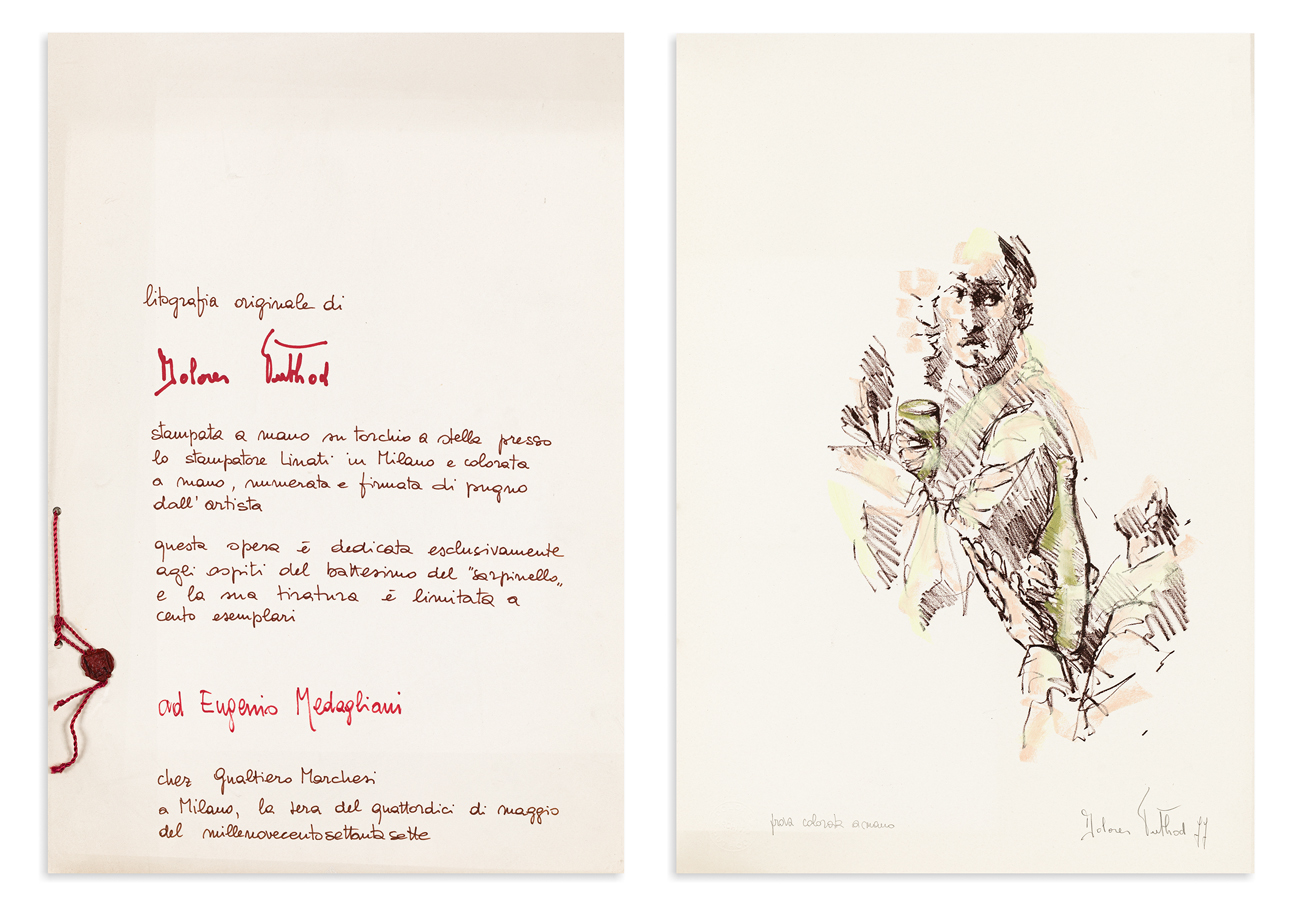 litografia originale di
Dolores Puthod
stampata a mano su torchio a stella presso
lo stampatore Linati in Milano e colorata
a mano, numerata e firmata di pugno
dall'artista
questa opera ē dedicata esclusivamente
agli ospiti del battesimo del "sarpinello„
e la sua tiratura ē limitata a
cento esemplari
ad Eugenio Medagliani
chez Gualtiero Marchesi
a Milano, la sera del quattordici di maggio
del millenovecentosettantasette
prova colorata a mano
Dolores Puthod 77